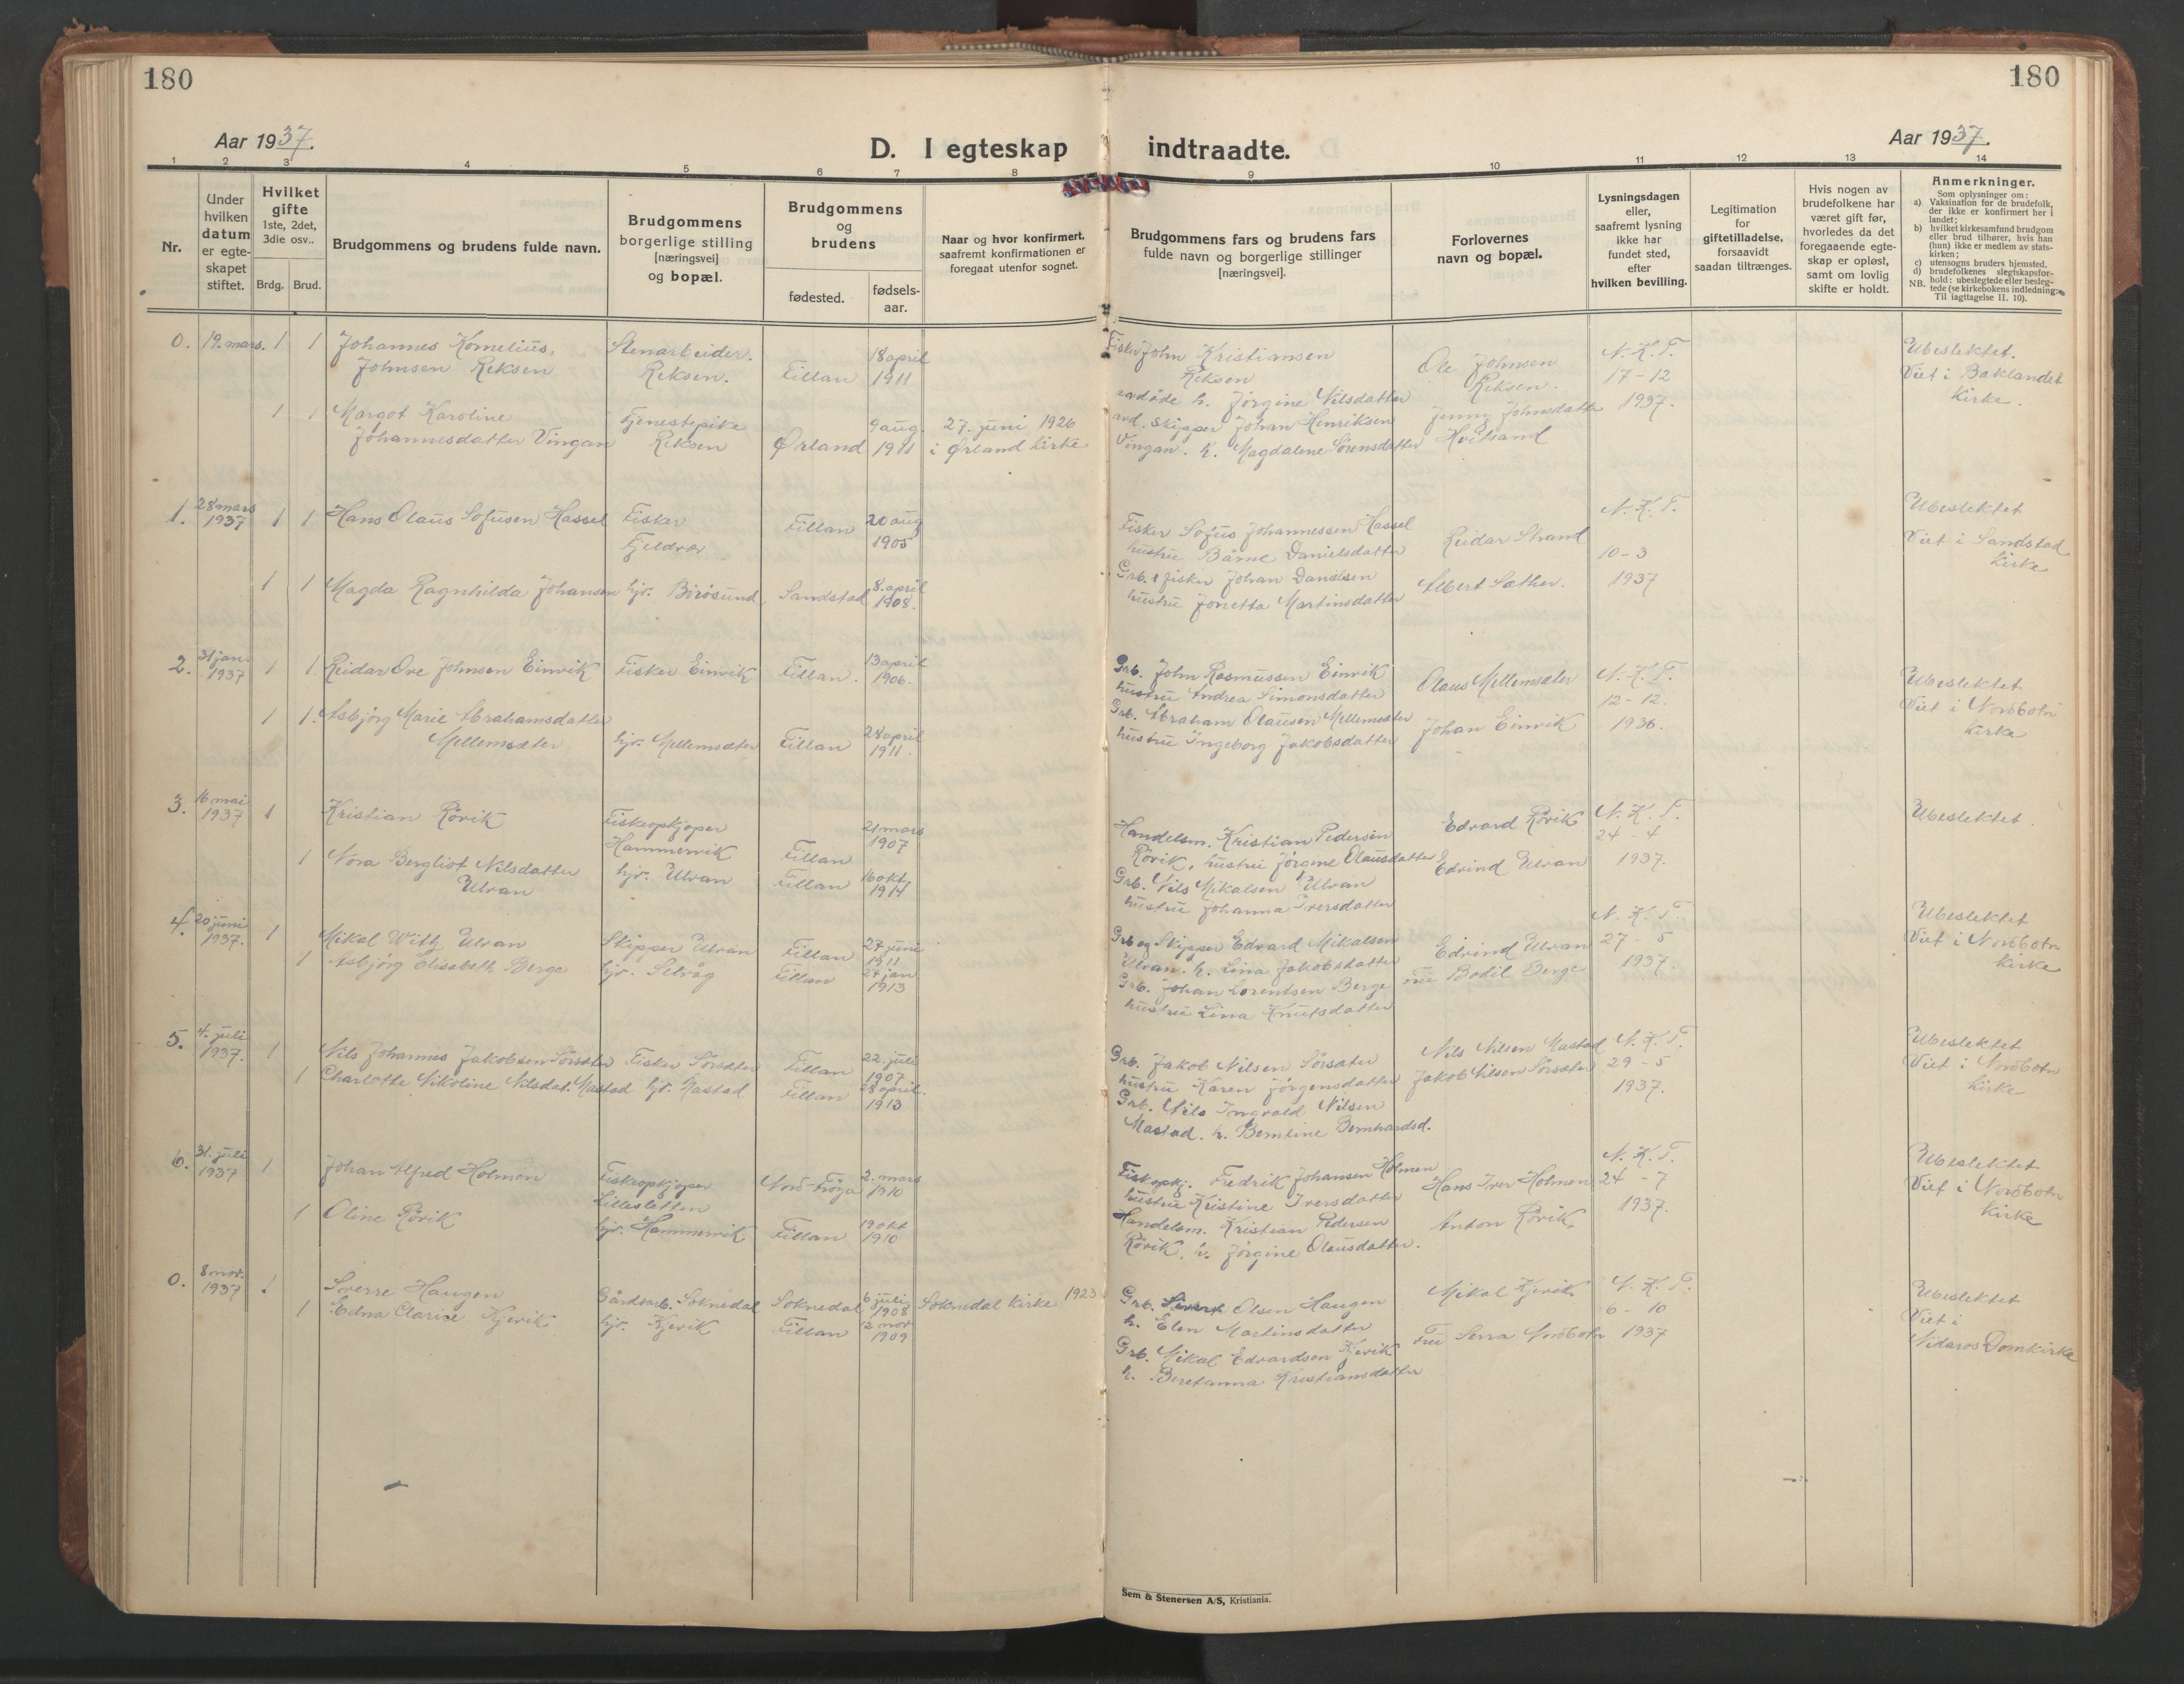 180
180
Aar 1937.
D. I egteskap indtraadte.
Aar 1937.
1 2 3 4 5 6 7 8 9 10 11 12 13 14
Nr.
Under
hvilken
datum
er egte-
skapet
stiftet.
Hvilket
gifte
1ste, 2det,
3die osv..
Brdg. Brud.
Brudgommens og brudens fulde navn.
Brudgommens
borgerlige stilling
[næringsvei]
og bopæl.
Brudgommens
og
brudens
fødested.
fødsels-
aar.
Naar og hvor konfirmert,
saafremt konfirmationen er
foregaat utenfor sognet.
Brudgommens fars og brudens fars
fulde navn og borgerlige stillinger
[næringsvei].
Forlovernes
navn og bopæl.
Lysningsdagen
eller,
saafremt lysning
ikke har
fundet sted,
efter
hvilken bevilling.
Legitimation
for
giftetilladelse,
forsaavidt
saadan tiltrænges.
Hvis nogen av
brudefolkene har
været gift før,
hvorledes da det
foregaaende egte-
skap er opløst,
samt om lovlig
skifte er holdt.
Anmerkninger.
Som oplysninger om:
a) Vaksination for de brudefolk,
der ikke er konfirmert her i
landet;
b) hvilket kirkesamfund brudgom
eller brud tilhører, hvis han
(hun) ikke er medlem av stats-
kirken;
c) utensogns bruders hjemsted.
d) brudefolkenes slegtskapsfor-
hold: ubeslegtede eller besleg-
NB. tede (se kirkebokens indledning:
Til iagttagelse II. 10).
0. 19. mars. 1 1
Johannes Kornelius,
Johnsen Reksen
Stenarbeider.
Reksen.
Fillan
18 april
1911
Fisker John Kristiansen
Reksen
avdøde h. Jørgine Nilsdatter
Ole Johnsen
Reksen.
N. K. T.
17-12
1937.
Ubeslektet.
Viet i Baklandet
Kirke.
1 1
Margot Karoline
Johannesdatter Vingan
Tjenestepike
Reksen
Ørland
9 aug.
1911
27. juni 1926
i Ørland kirke
avd. Skipper Johan Henriksen
Vingan. h. Magdalene Sørensdatter
Jenny Johnsdatter
Hvitsand
1. 28 mars
1937 1 1
Hans Olaus Sofusen Hassel
Fisker
Fjeldvær
Fillan
20 aug
1905
Fisker Sofus Johannessen Hassel
hustru Danielsdatter
Reidar Strand
N. K. T.
10-3
1937
Ubeslektet
Viet i Sandstad
Kirke
1 1
Magda Ragnhilda Johansen
hjv. Börösund
Sandstad
8. april
1908.
Grb. & fisker Johan Danielsen
hustru Jonetta Martinsdatter
Albert Sæther.
2. 31 jan.
1937 1 1.
Reidar Ove Johnsen Einvik
Fisker Einvik
Fillan.
13 april
1906.
Grb. John Rasmussen Einvik
hustru Andrea Simonsdatter
Olaus Mellemsæter
N. K. T.
12-12.
1936.
Ubeslektet
Viet i Nordbotn
Kirke
1 1.
Asbjørg Marie Abrahamsdatter
Mellemsæter
hjv. Mellemsæter
Fillan
28 april
1911.
Grb. Abraham Olausen Mellemsæter
hustru Ingeborg Jakobsdatter
Johan Einvik
3. 16 mai
1937 1
Kristian Rövik
Fiskeopkjøper
Hammervik
Fillan
21 mars
1907
Handelsm. Kristian Pedersen
Rövik, hustru Jörgine Olausdatter
Edvard Rövik
N. K. T.
24-4
1937.
Ubeslektet.
1
Nora Bergliot Nilsdatter
Ulvan
hjv. Ulvan
Fillan
16 okt.
1914
Grb. Nils Mikalsen Ulvan
hustru Johanna Iversdatter
Edvind Ulvan
4. 20 juni
1937. 1
Mikal With Ulvan
Skipper Ulvan
Fillan
27 juni
1911
Grb og Skipper Edvard Mikalsen
Ulvan. h. Lina Jakobsdatter
Edvind Ulvan
N. K. T.
27-5
1937.
Ubeslektet
Viet i Nordbotn
Kirke
1
Asbjörg Elisabeth Berge
hjv. Selvåg
Fillan
24 jan
1913
Grb. Johan Lorentsen Berge
hustru Lina Knutsdatter
Fru Bodil Berge
5. 4. juli
1937. 1
Nils Johannes Jakobsen Sörsæter
Fisker Sörsæter
Fillan
22. juli
1907
Grb. Jakob Nilsen Sörsæter
hustru Karen Jörgensdatter
Nils Nilsen Mastad
N. K. T.
29-5
1937.
Ubeslektet
Viet i Nordbotn
Kirke
1
Charlotte Nikoline Nilsdat. Mastad
hjv. Mastad
Fillan
28 april.
1913
Grb. Nils Ingvald Nilsen
Mastad. h. Berntine Bernhardsd.
Jakob Nilsen Sörsæter
6. 31. juli
1937 1
Johan Alfred Holmen
Fiskeopkjøper
Lillesletten
Nord-Fröya
2. mars
1910
Fiskopkj. Fredrik Johansen Holmen
hustru Kristine Iversdatter
Hans Iver Holmen
N. K. T.
24-7
1937.
Ubeslektet
Viet i Nordbotn
Kirke
1
Oline Rövik
hjv. Hammervik
Fillan
19 okt
1910
Handelsm. Kristian Pedersen
Rövik, h. Jörgine Olausdatter.
Anton Rövik.
0. 8 nov.
1937 1
Sverre Haugen
Gårdsarb. Soknedal
Soknedal
6 juli
1908
Soknedal kirke 1923
Grb. Sivert Olsen Haugen
h. Elen Martinsdatter
Mikal Kjervik
N. K. T.
6-10
1937
Ubeslektet
Viet i
Nidaros Domkirke
1
Edna Clarice Kjervik
hjv. Kjervik
Fillan
12 nov
1909
Grb. Mikal Edvardsen Kjervik
h. Beretanna Kristiansdatter
Fru Serra Nordbotn
Sem & Stenersen A/S, Kristiania.